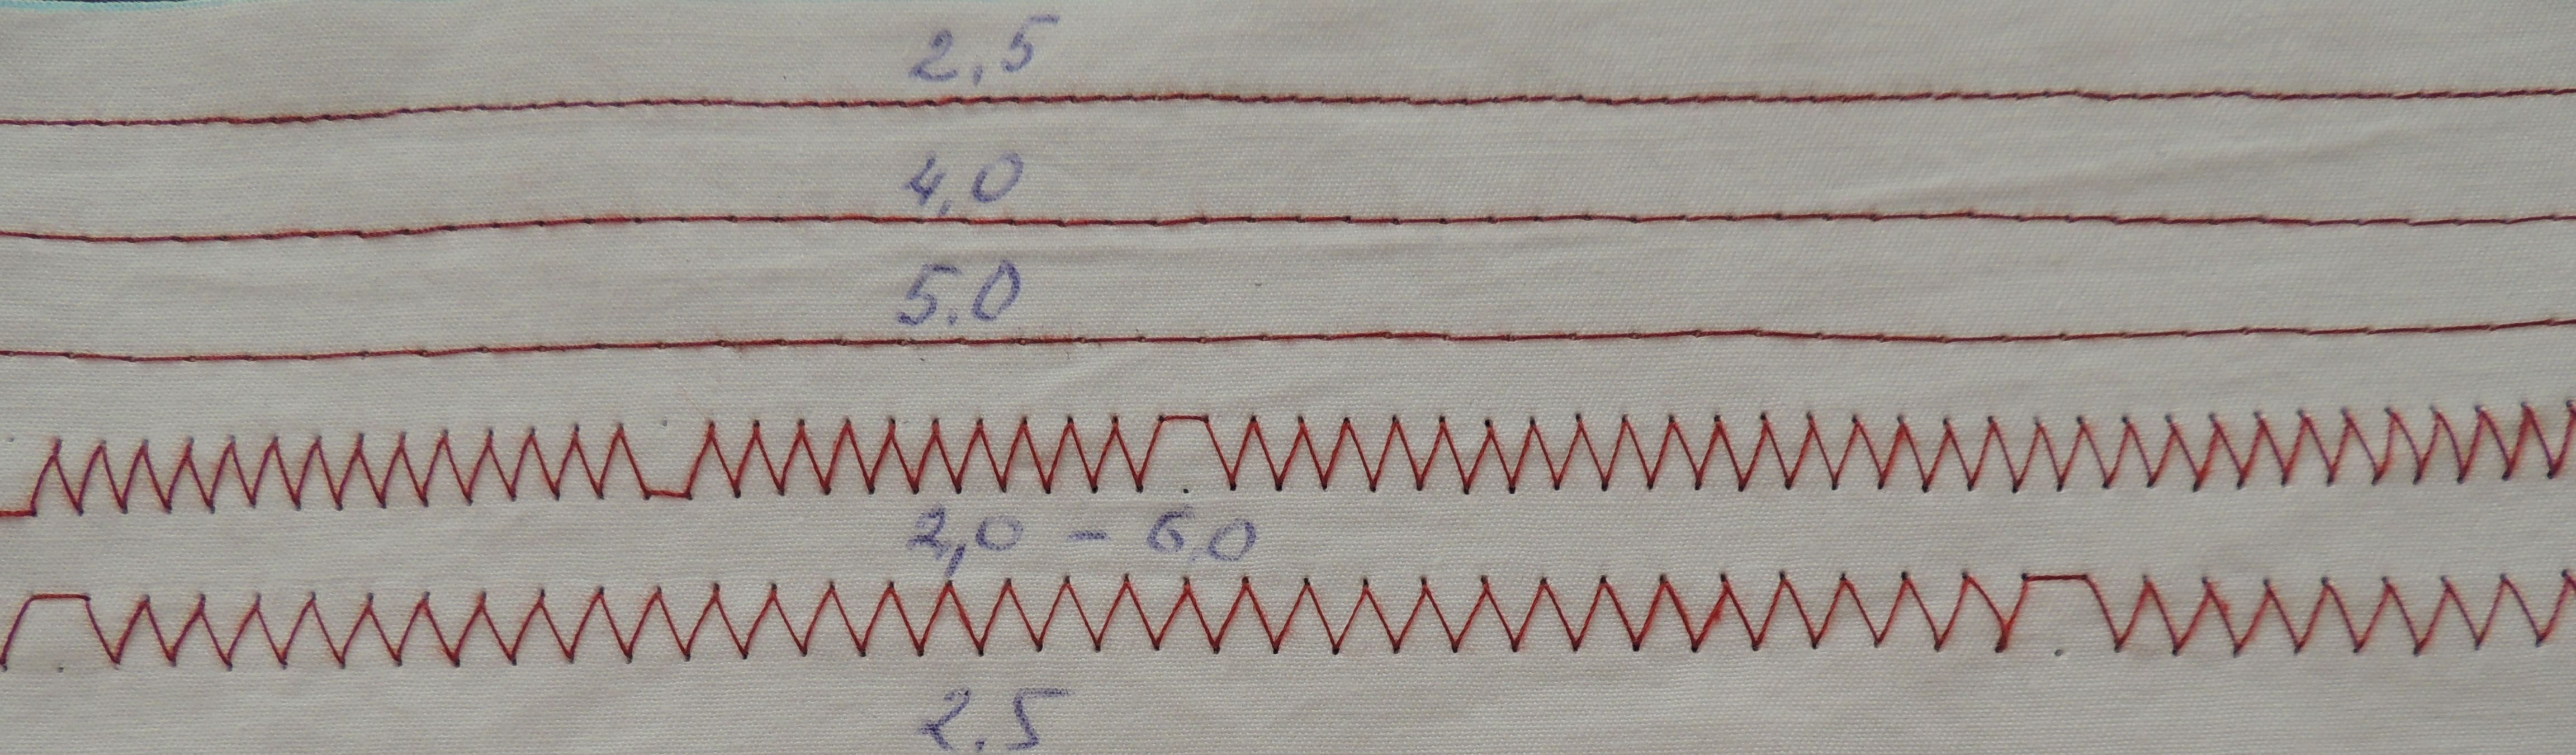 2,5
4,0
5.0
2,0 - 6.0
2.5